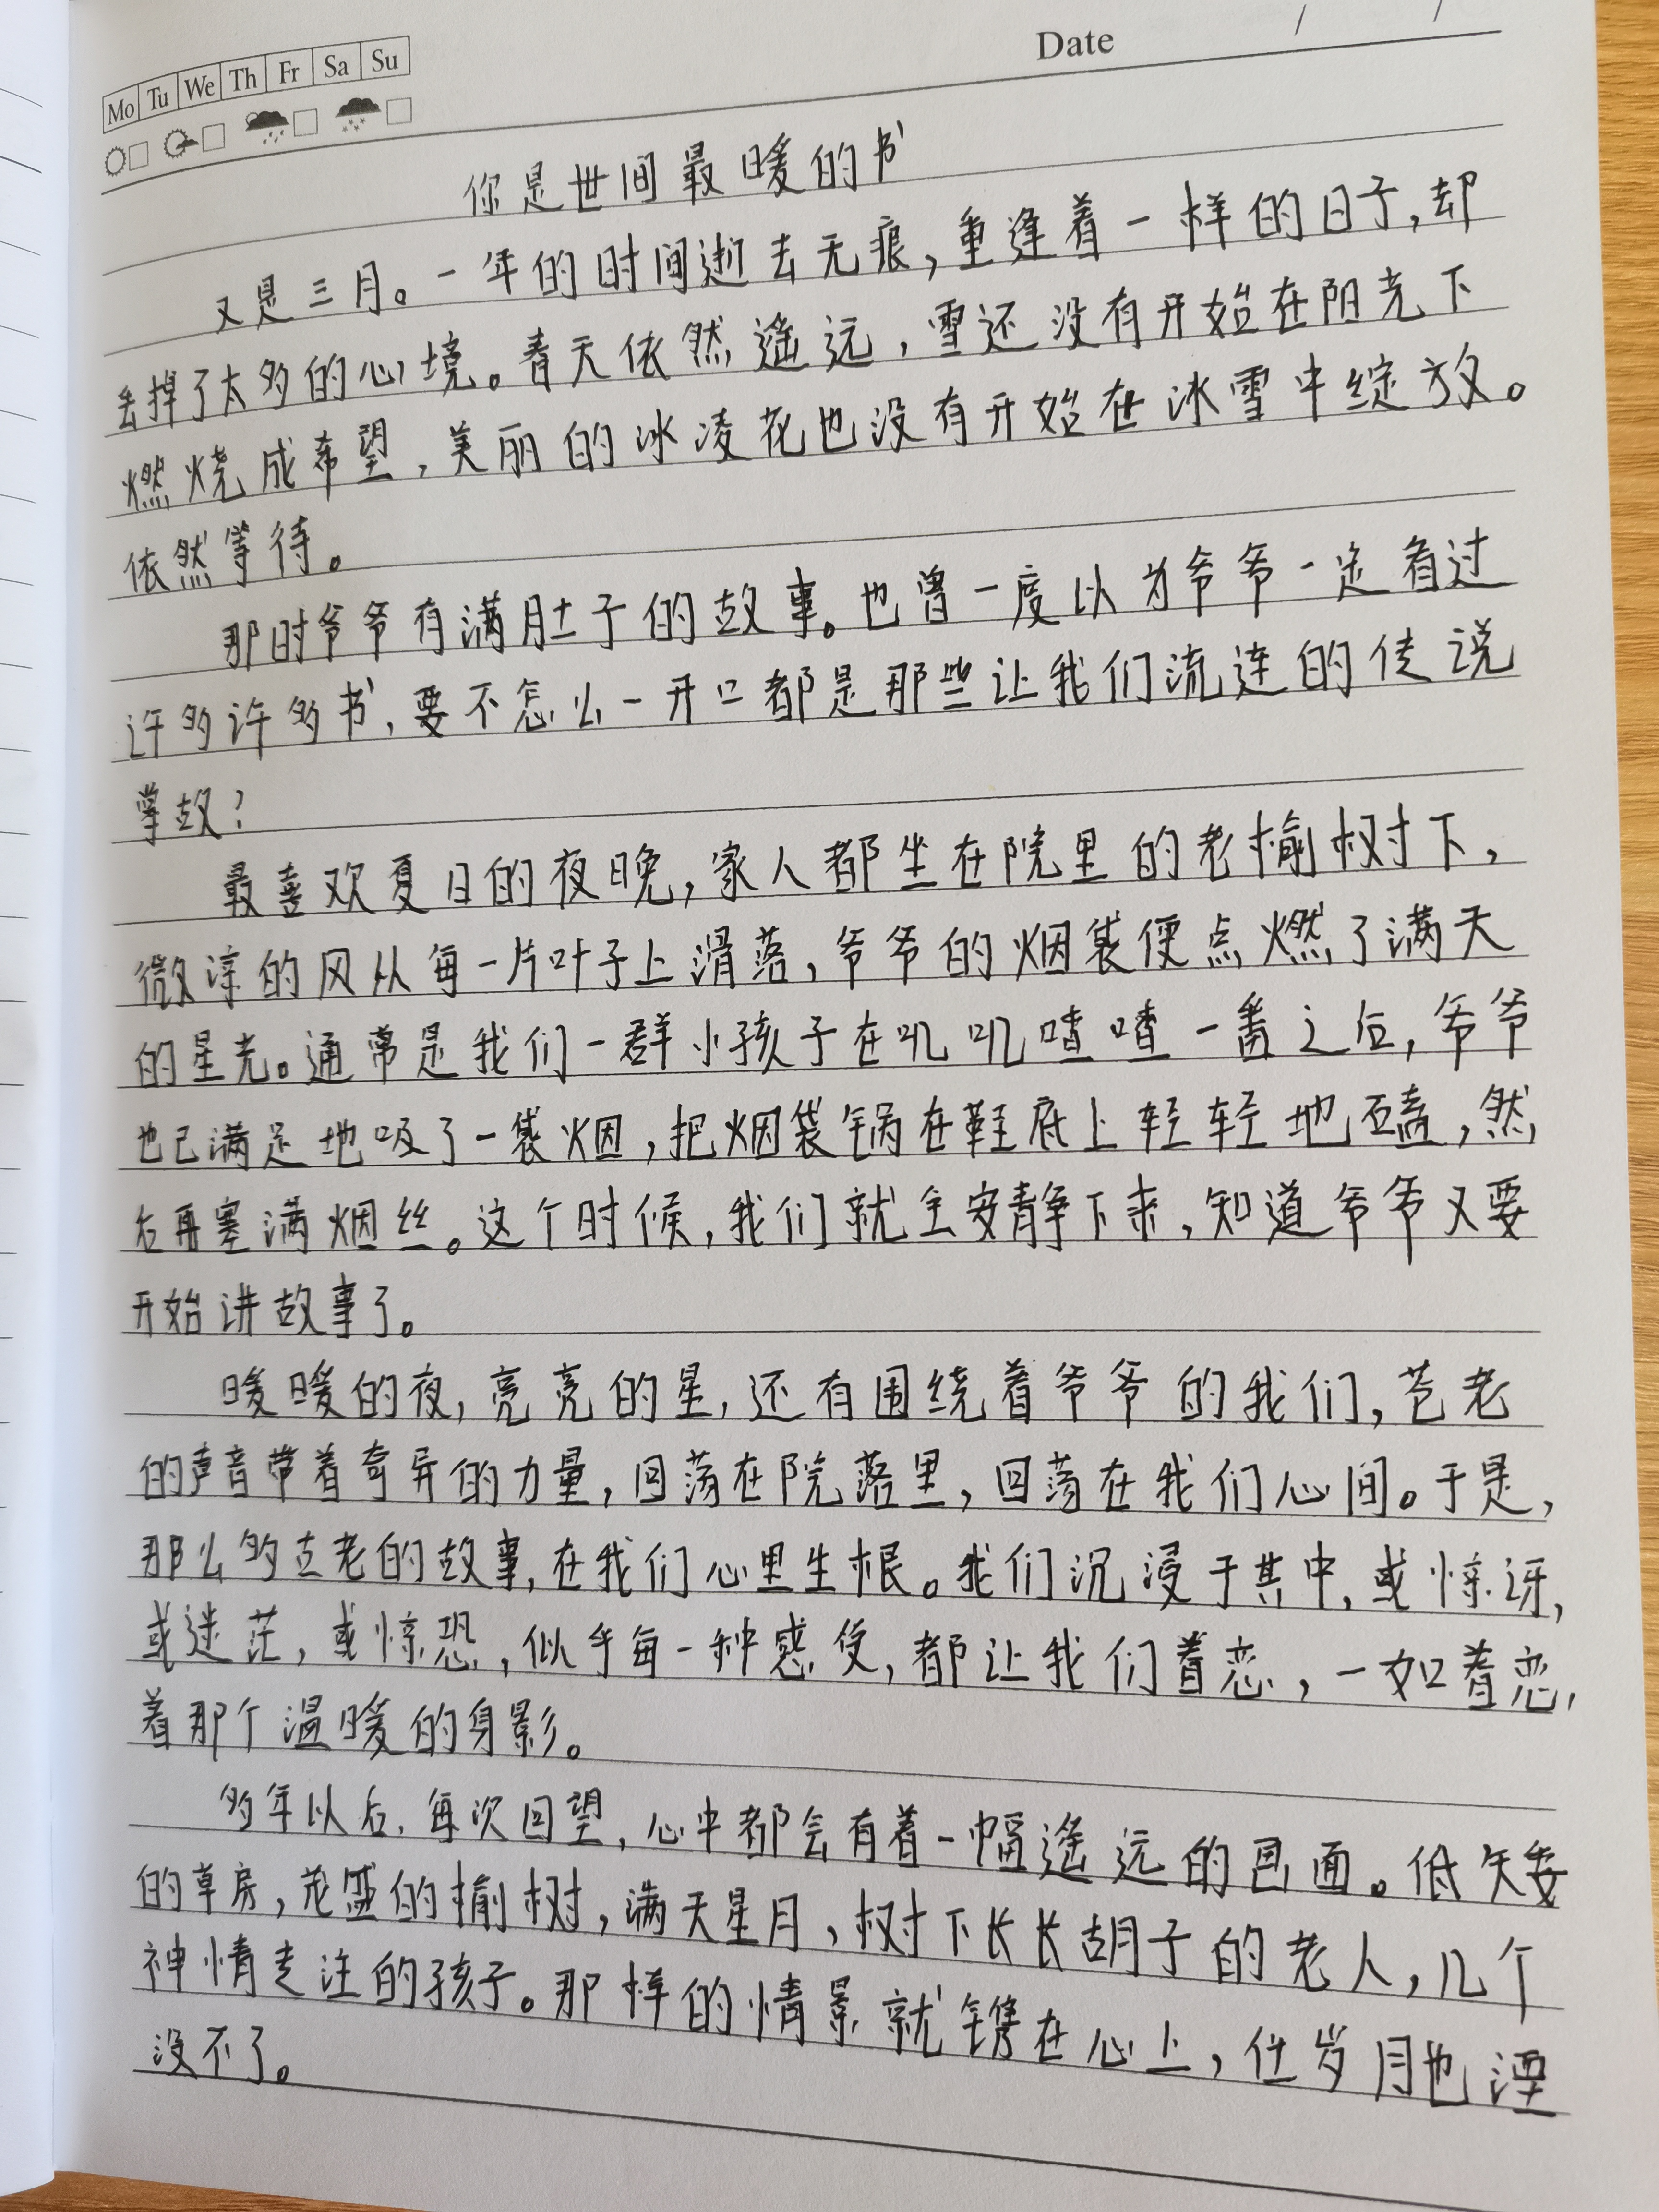 Date / /
Mo Tu We Th Fr Sa Su
你是世间最暖的书
又是三月。一年的时间逝去无痕,重逢着一样的日子,却
丢掉了太多的心境。春天依然遥远,雪还没有开始在阳光下
燃烧成希望,美丽的冰凌花也没有开始在冰雪中绽放。
依然等待。
那时爷爷有满肚子的故事。也曾一度以为爷爷一定看过
许多许多书,要不怎么一开口都是那些让我们流连的传说
掌故?
最喜欢夏日的夜晚,家人都坐在院里的老榆树下,
微凉的风从每一片叶子上滑落,爷爷的烟袋便点燃了满天
的星光。通常是我们一群小孩子在叽叽喳喳一番之后,爷爷
也已满足地吸了一袋烟,把烟袋锅在鞋底上轻轻地磕,然
后再塞满烟丝。这个时候,我们就全安静下来,知道爷爷又要
开始讲故事了。
暖暖的夜,亮亮的星,还有围绕着爷爷的我们,苍老
的声音带着奇异的力量,回荡在院落里,回荡在我们心间。于是,
那么多古老的故事,在我们心里生根。我们沉浸于其中,或惊讶,
或迷茫,或惊恐,似乎每一种感受,都让我们着恋,一如着恋
着那个温暖的身影。
多年以后,每次回望,心中都会有着一幅遥远的画面。低矮
的草房,茂盛的榆树,满天星月,树下长长胡子的老人,几个
神情专注的孩子。那样的情景就镌在心上,任岁月也湮
没不了。